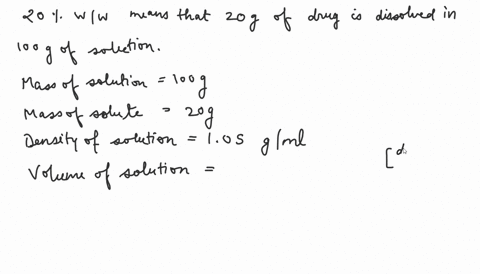 20 % w/w means that 20g of drug is dissolved in
100 g of solution.
Mass of solution = 100g
Mass of solute = 20g
Density of solution = 1.05 g/ml
Volume of solution =
[d